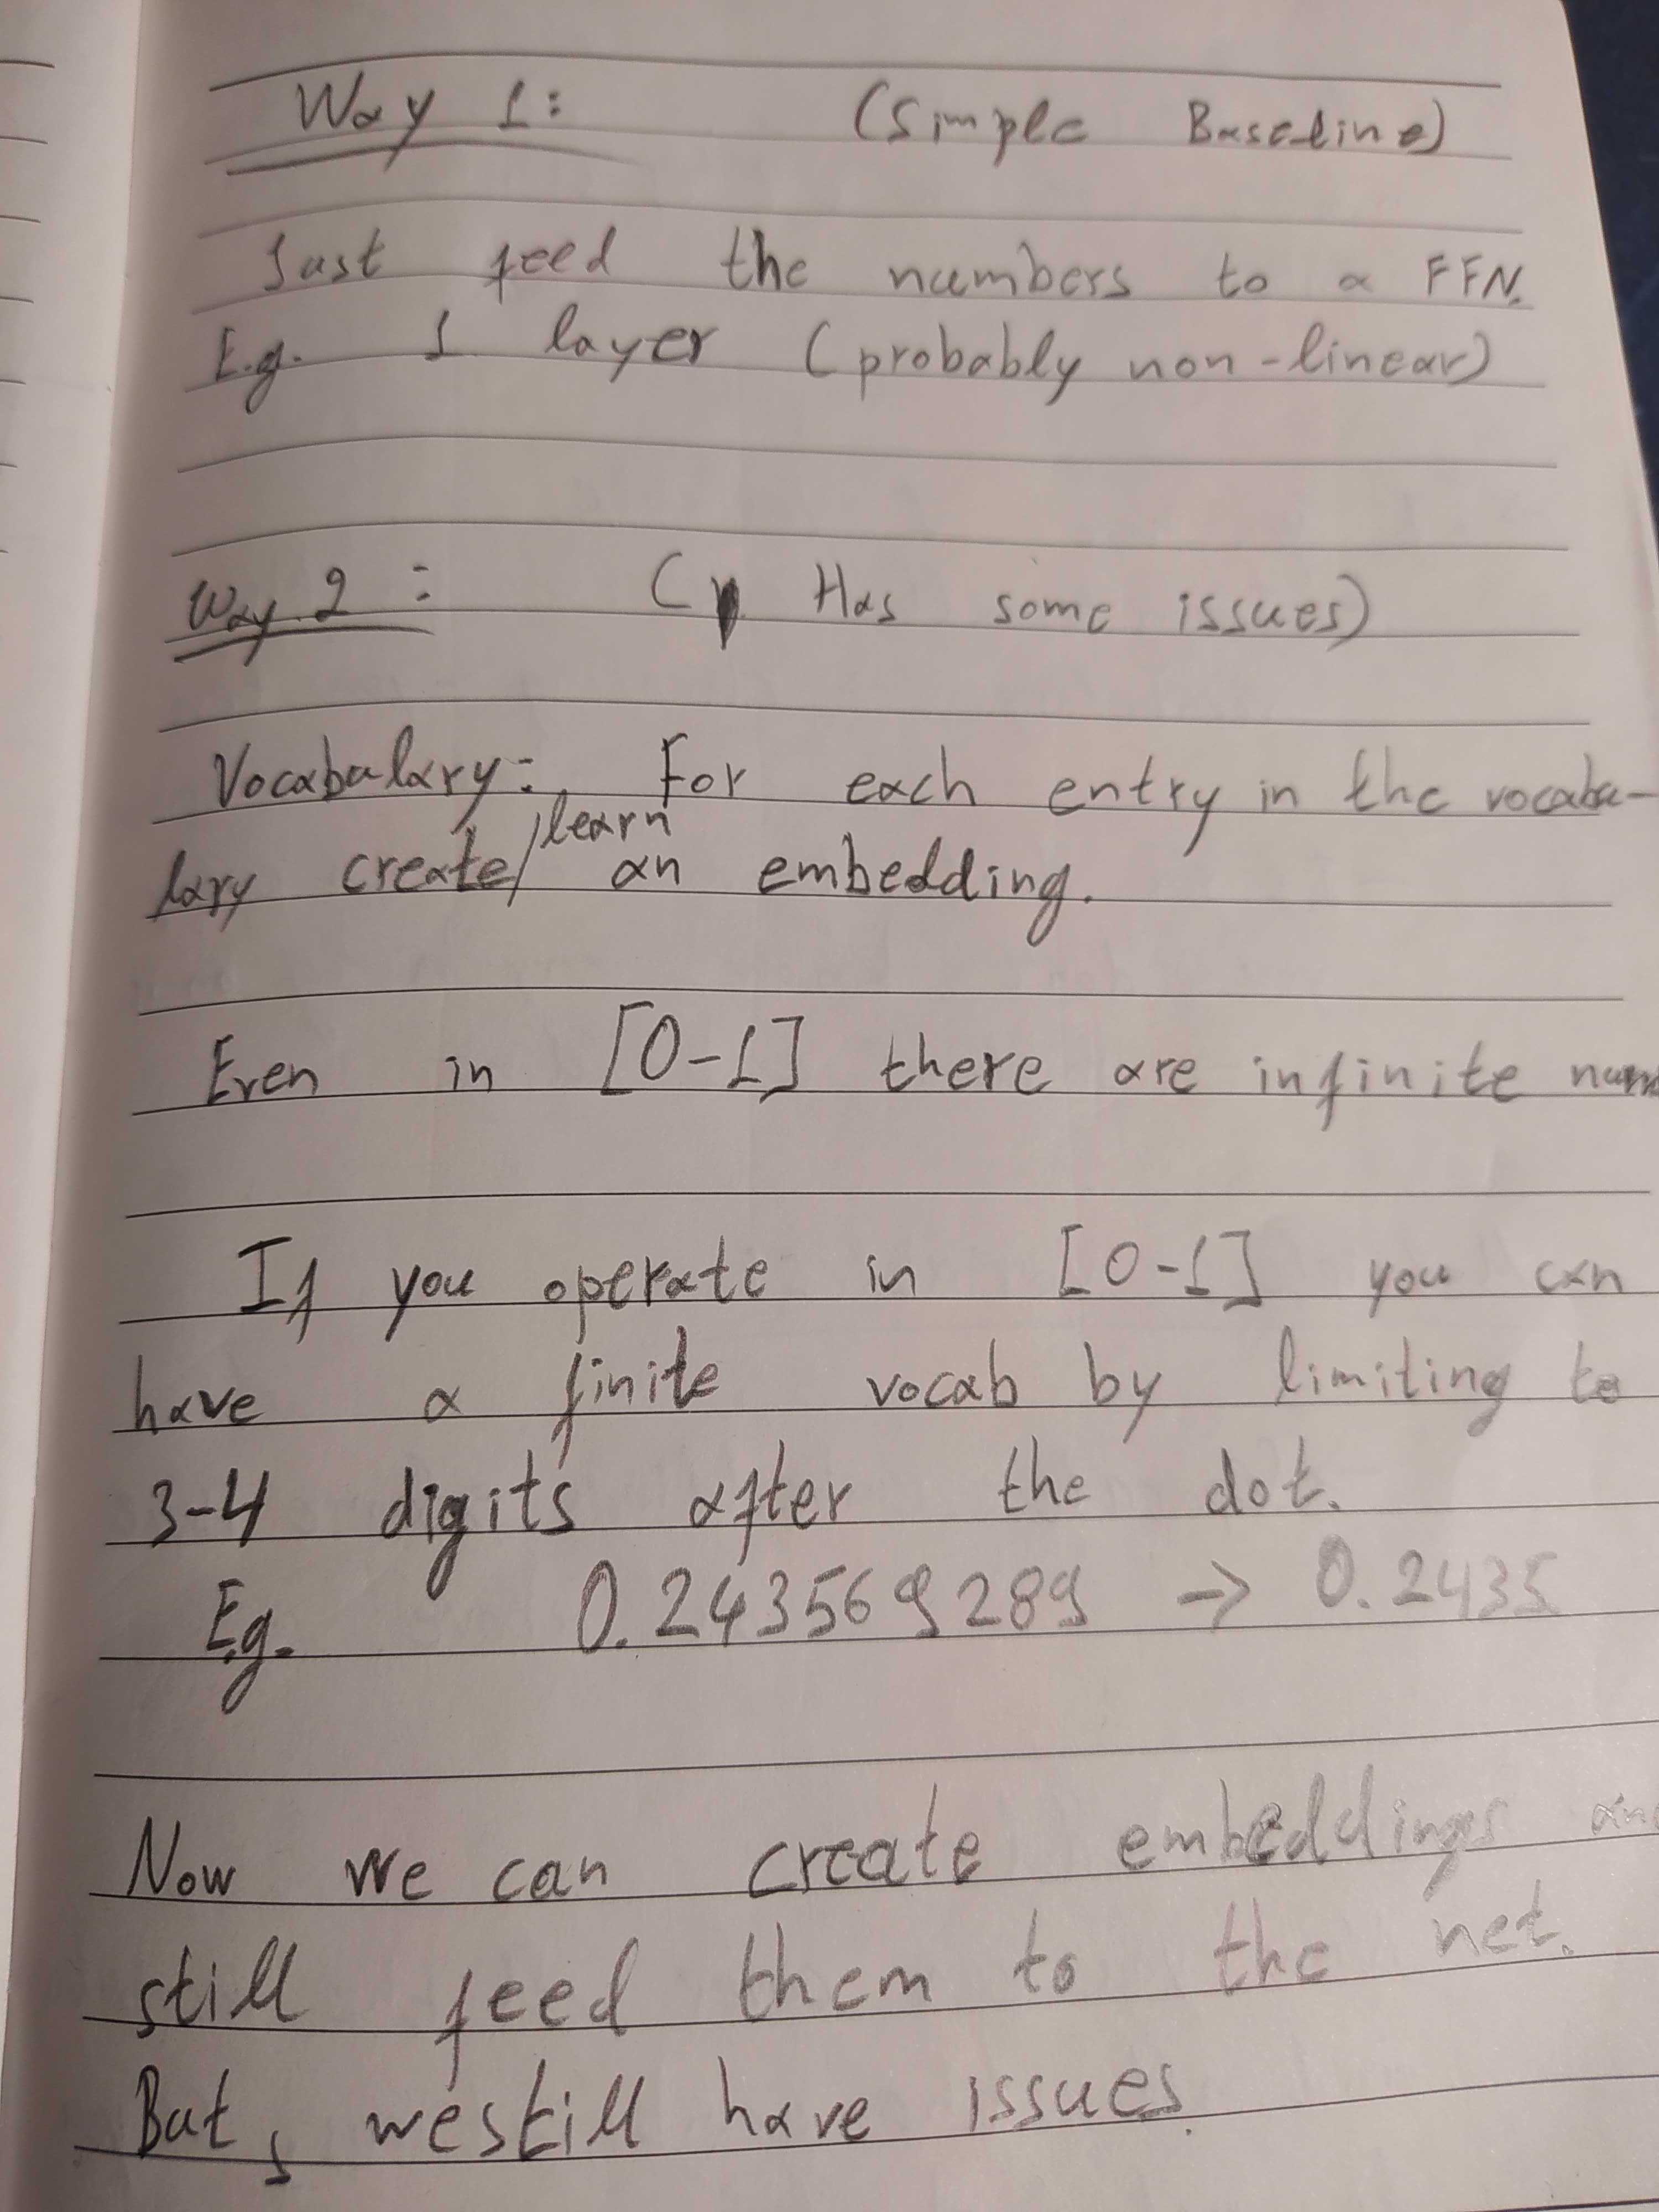 Way 1: (Simple Baseline)
Just feed the numbers to a FFN.
E.g. 1 layer (probably non-linear)
Way 2: ( Has some issues)
Vocabulary: For each entry in the vocabu-
lary create/learn an embedding.
Even in [0-1] there are infinite num
If you operate in [0-1] you can
have a finite vocab by limiting to
3-4 digits after the dot.
E.g. 0.243569289 → 0.2435
Now we can create embeddings an
still feed them to the net.
But, we still have issues.